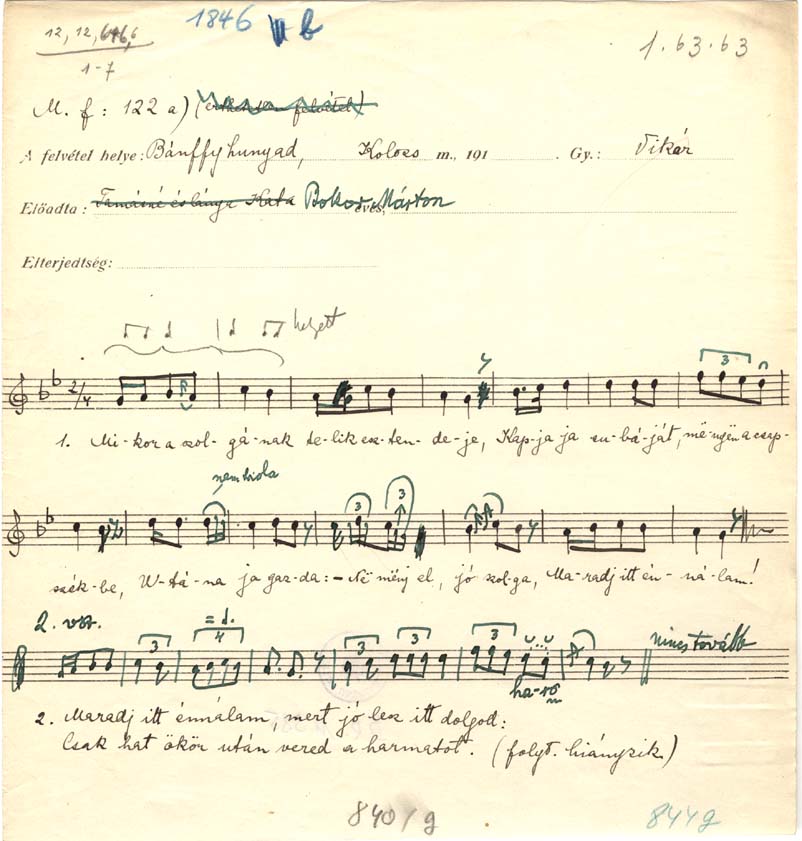 12, 12, 6+6, 6
1-7
1846 b
1 . 63 . 63
M. f : 122 a) (
A felvétel helye: Bánffyhunyad, Kolozs m., 191 . Gy.: Vikár
Előadta: Tamásné és lánya Kata Bokor Márton éves,
Elterjedtség:
helyett
2/4
3
1. Mi-kor a szol-gá-nak te-lik esz-ten-de-je, Kap-ja ja su-bá-ját, më-ngën a csap-
nem
3 3
szék-be, U-tá-na ja gaz-da: - Në mënj el, jó szol-ga, Ma-radj itt én-ná-lam!
2. vsz.
3 4 3 3 3
nincs tovább
ha-rö
2. Maradj itt énnálam, mert jó lesz itt dolgod:
Csak hat ökör után vered a harmatot. (folyt. hiányzik)
840/g
844g